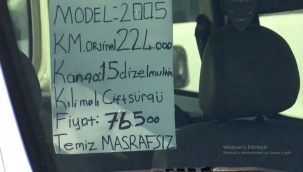 MODEL=2005
KM.orsinal 224.000
Kango 15 dizel multi
Klimalı Çift sürgü
Fiyat: 76.500
Temiz MASRAFSIZ
Windows'u Etkinleştir